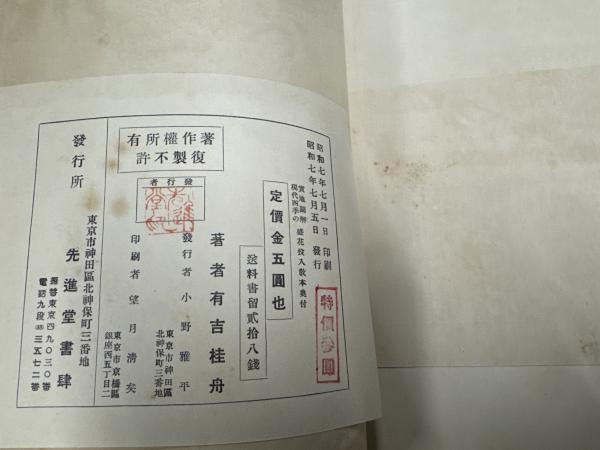 昭和七年七月一日 印刷
昭和七年七月五日 發行
實地圖解
現代四季の 盛花投入敎本奥付
定價金五圓也
送料書留貳拾八錢
特價參圓
著作權所有
復製不許
發行者
著者 有吉桂舟
發行者 小野雅平
東京市神田區
北神保町三番地
印刷者 望月淸矣
東京市京橋區
銀座西五丁目二
發行所
東京市神田區北神保町三番地
先進堂書肆
振替東京四九〇三〇番
電話九段㉝三五七二番